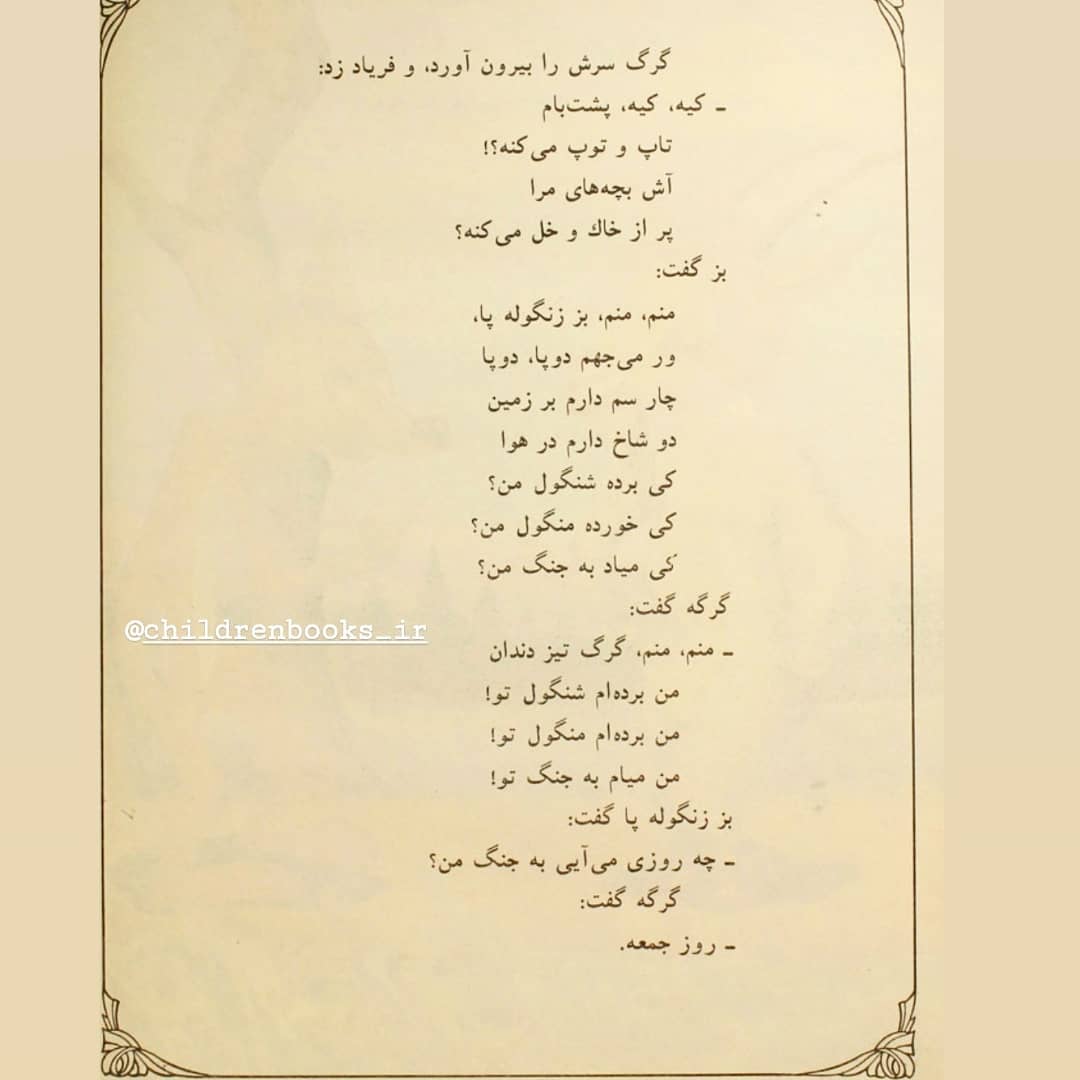 گرگ سرش را بیرون آورد، و فریاد زد:
ـ کیه، کیه، پشت‌بام
تاپ و توپ می‌کنه؟!
آش بچه‌های مرا
پر از خاك و خل می‌کنه؟
بز گفت:
منم، منم، بز زنگوله پا،
ور می‌جهم دوپا، دوپا
چار سم دارم بر زمین
دو شاخ دارم در هوا
کی برده شنگول من؟
کی خورده منگول من؟
کی میاد به جنگ من؟
گرگه گفت:
@childrenbooks_ir
ـ منم، منم، گرگ تیز دندان
من برده‌ام شنگول تو!
من برده‌ام منگول تو!
من میام به جنگ تو!
بز زنگوله پا گفت:
ـ چه روزی می‌آیی به جنگ من؟
گرگه گفت:
ـ روز جمعه.